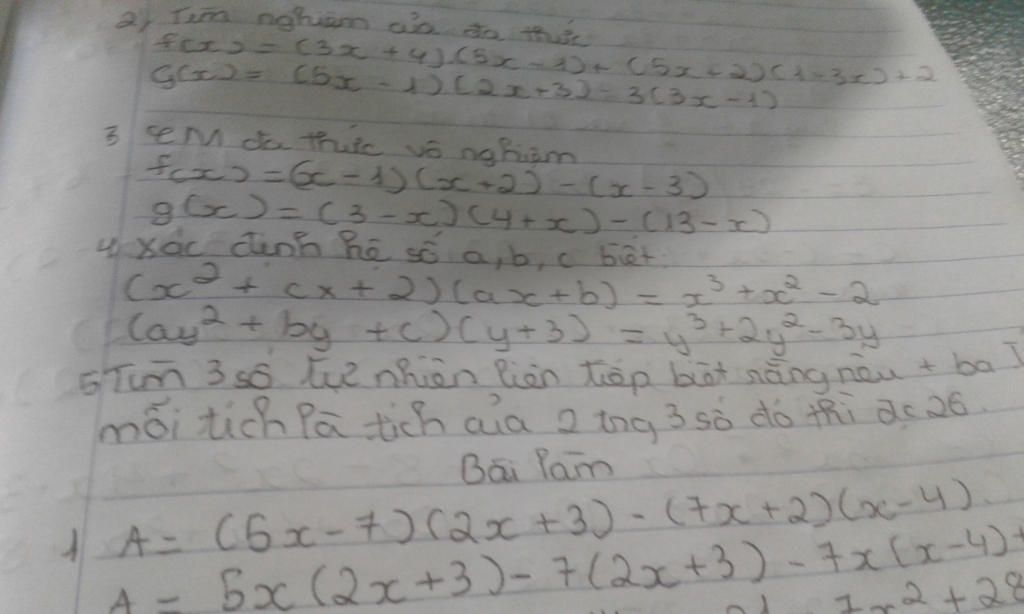 2, Tìm nghiệm của đa thức
f(x) = (3x + 4)(5x - 1) + (5x + 2)(1 - 3x) + 2
g(x) = (5x - 1)(2x + 3) - 3(3x - 1)
3 CM đa thức vô nghiệm
f(x) = (x - 1)(x + 2) - (x - 3)
g(x) = (3 - x)(4 + x) - (13 - x)
4, xác định hệ số a, b, c biết:
(x² + cx + 2)(ax + b) = x³ + x² - 2
(ay² + by + c)(y + 3) = y³ + 2y² - 3y
5 Tìm 3 số tự nhiên liên tiếp biết rằng nếu + ba
mỗi tích là tích của 2 trg 3 số đó thì đc 26.
Bài làm
1 A = (5x - 7)(2x + 3) - (7x + 2)(x - 4)
A = 5x(2x + 3) - 7(2x + 3) - 7x(x - 4) +
7x² + 28